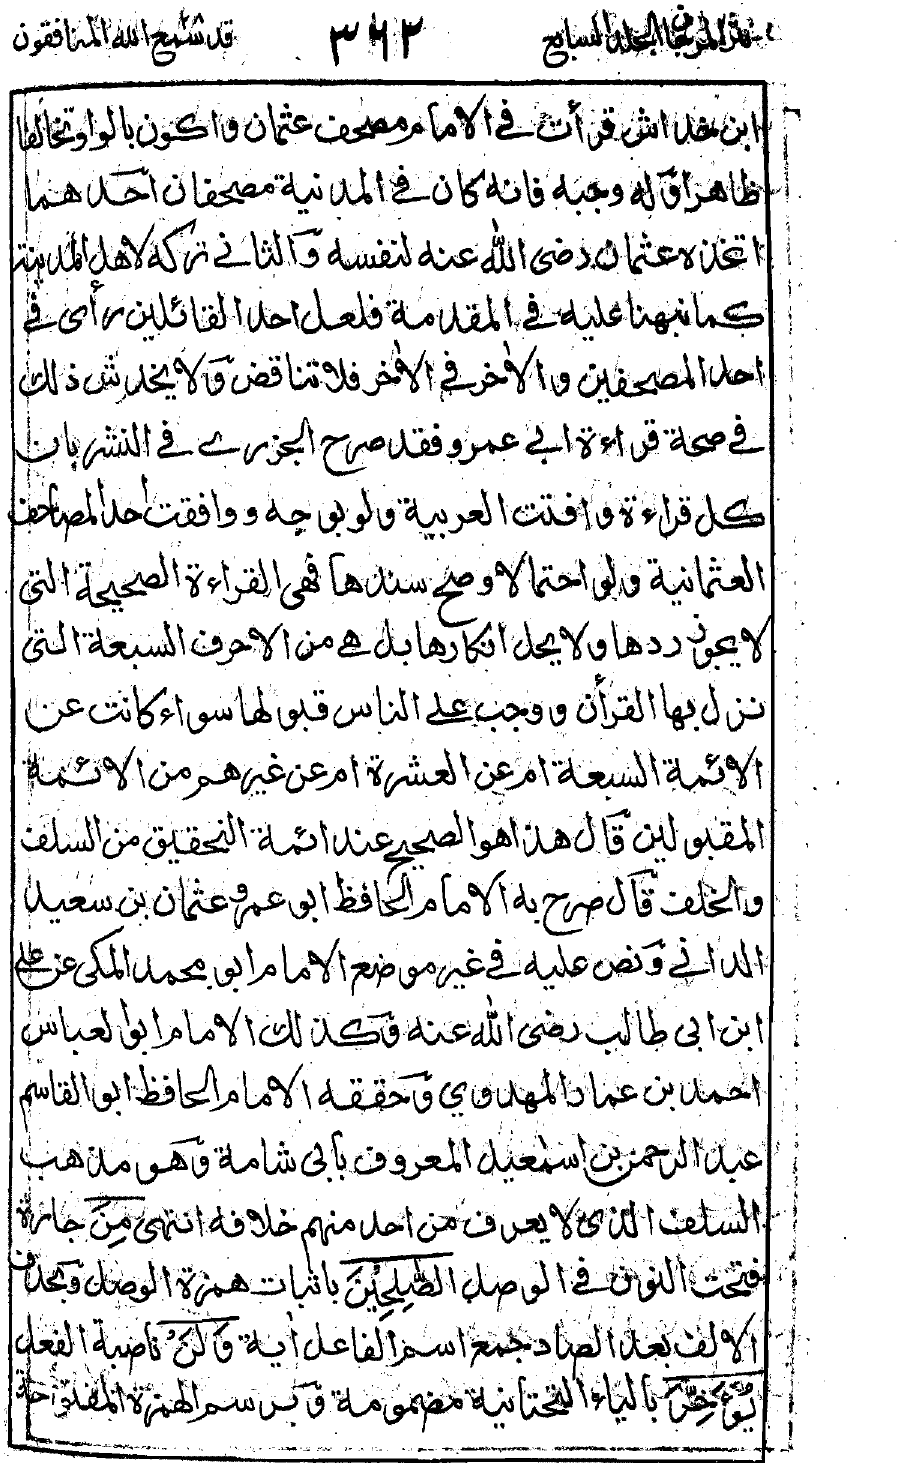 نثر المرجان المجلد السابع ٣٦٢ قد سمع الله المنافقون
ابن خداش قرأت في الامام مصحف عثمان واكون بالواو تخالفا
ظاهرا قله وجبه فانه كان في المدنية مصحفان احدهما
اتخذه عثمان رضى الله عنه لنفسه والثاني تركه لاهل المدينة
كما نبهنا عليه في المقدمة فلعل احد القائلين رأى في
احد المصحفين والأخر في الأخر فلا تناقض ولا يخدش ذلك
في صحة قراءة ابي عمرو فقد صرح الجزري في النشر بان
كل قراءة وافقت العربية ولو بوجه ووافقت احد المصاحف
العثمانية ولو احتمالا وصح سندها فهي القراءة الصحيحة التي
لا يجوز ردها ولا يحل انكارها بل هي من الاحرف السبعة التي
نزل بها القرأن ووجب على الناس قبولها سواء كانت عن
الائمة السبعة ام عن العشرة ام عن غيرهم من الائمة
المقبولين قال هذا هو الصحيح عند ائمة التحقيق من السلف
والخلف قال صرح به الامام الحافظ ابو عمرو عثمان بن سعيد
الداني ونص عليه في غير موضع الامام ابو محمد المكي عن علي
ابن ابي طالب رضى الله عنه وكذلك الامام ابو العباس
احمد بن عماد المهدوي وحققه الامام الحافظ ابو القاسم
عبد الرحمن بن اسمعيل المعروف بابي شامة وهو مذهب
السلف الذي لا يعرف من احد منهم خلافه انتهى مِنَ جارة
فتحت النون في الوصل الصّٰلِحِيْنَ باثبات همزة الوصل وبحذف
الالف بعد الصاد جمع اسم الفاعل اية وَلَنْ ناصبة الفعل
يُؤَخِّرَ بالياء التحتانية مضمومة وبرسم الهمزة المفتوحة